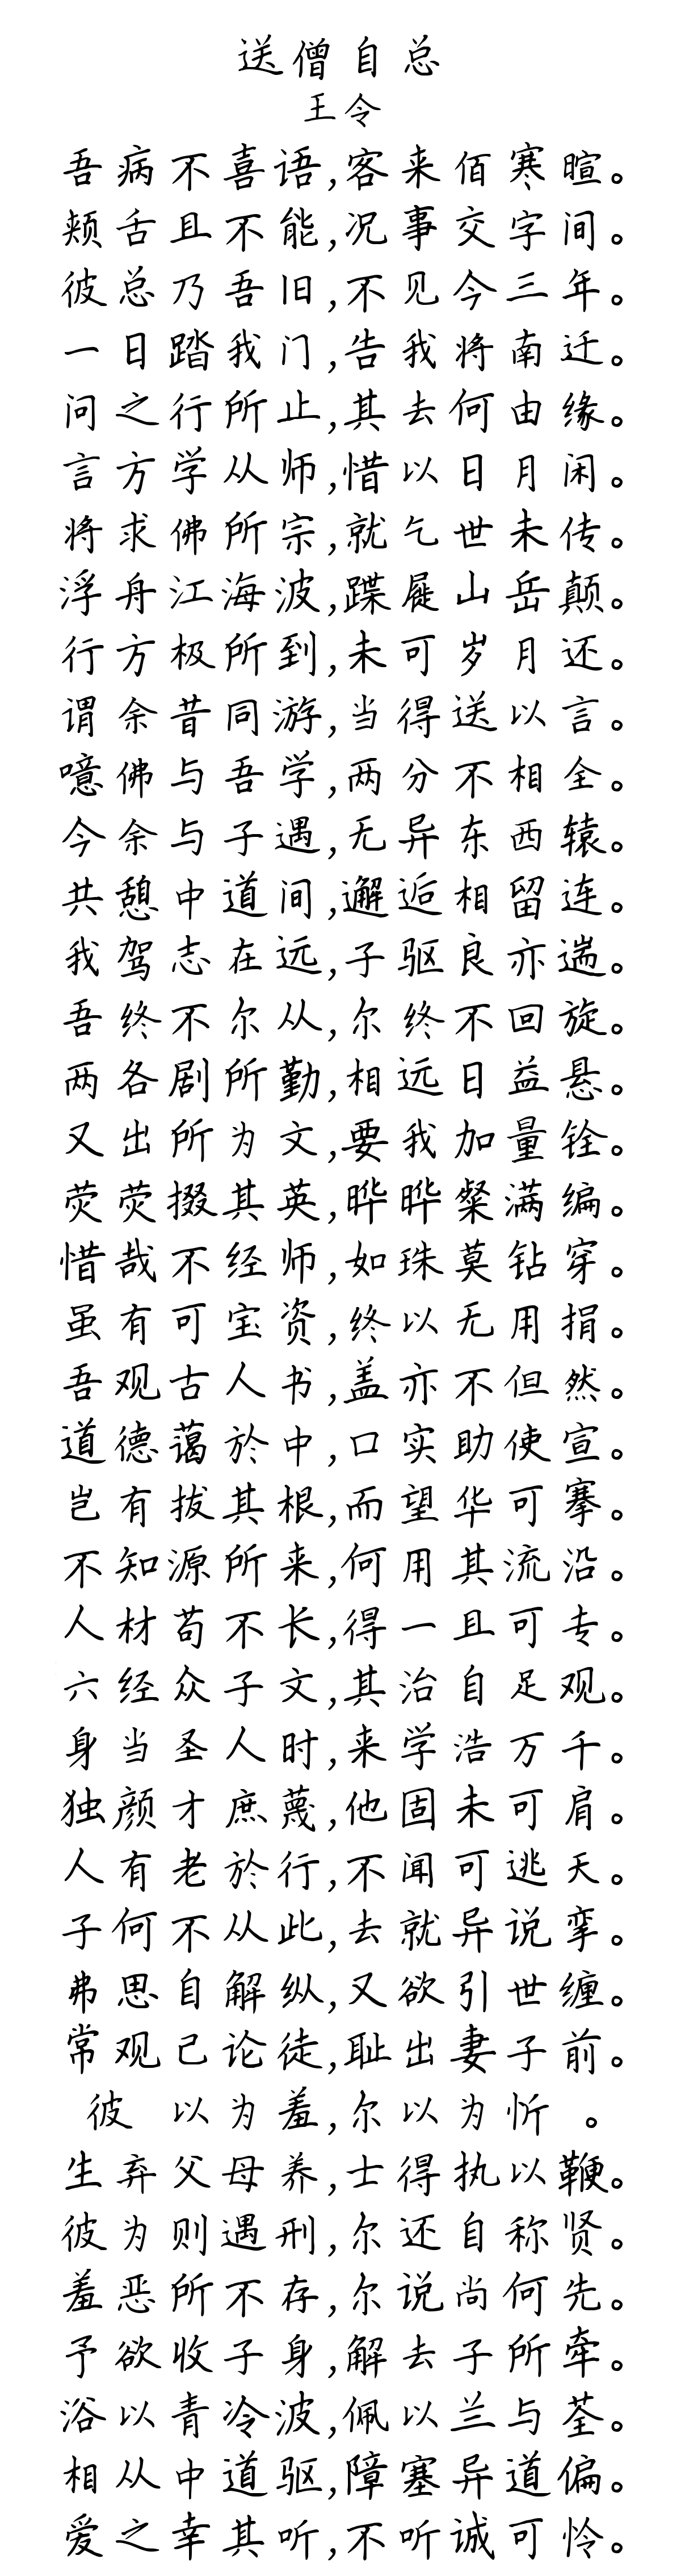 送僧自总
王令
吾病不喜语,客来佰寒暄。
颊舌且不能,况事交字间。
彼总乃吾旧,不见今三年。
一日踏我门,告我将南迁。
问之行所止,其去何由缘。
言方学从师,惜以日月闲。
将求佛所宗,就乞世未传。
浮舟江海波,蹀屣山岳颠。
行方极所到,未可岁月还。
谓余昔同游,当得送以言。
噫佛与吾学,两分不相全。
今余与子遇,无异东西辕。
共憩中道间,邂逅相留连。
我驾志在远,子驱良亦遄。
吾终不尔从,尔终不回旋。
两各剧所勤,相远日益悬。
又出所为文,要我加量铨。
荧荧掇其英,晔晔粲满编。
惜哉不经师,如珠莫钻穿。
虽有可宝资,终以无用捐。
吾观古人书,盖亦不但然。
道德蔼於中,口实助使宣。
岂有拔其根,而望华可搴。
不知源所来,何用其流沿。
人材苟不长,得一且可专。
六经众子文,其治自足观。
身当圣人时,来学浩万千。
独颜才庶蔑,他固未可肩。
人有老於行,不闻可逃天。
子何不从此,去就异说挛。
弗思自解纵,又欲引世缠。
常观己论徒,耻出妻子前。
彼 以为羞,尔以为忻 。
生弃父母养,士得执以鞭。
彼为则遇刑,尔还自称贤。
羞恶所不存,尔说尚何先。
予欲收子身,解去子所牵。
浴以青冷波,佩以兰与荃。
相从中道驱,障塞异道偏。
爱之幸其听,不听诚可怜。